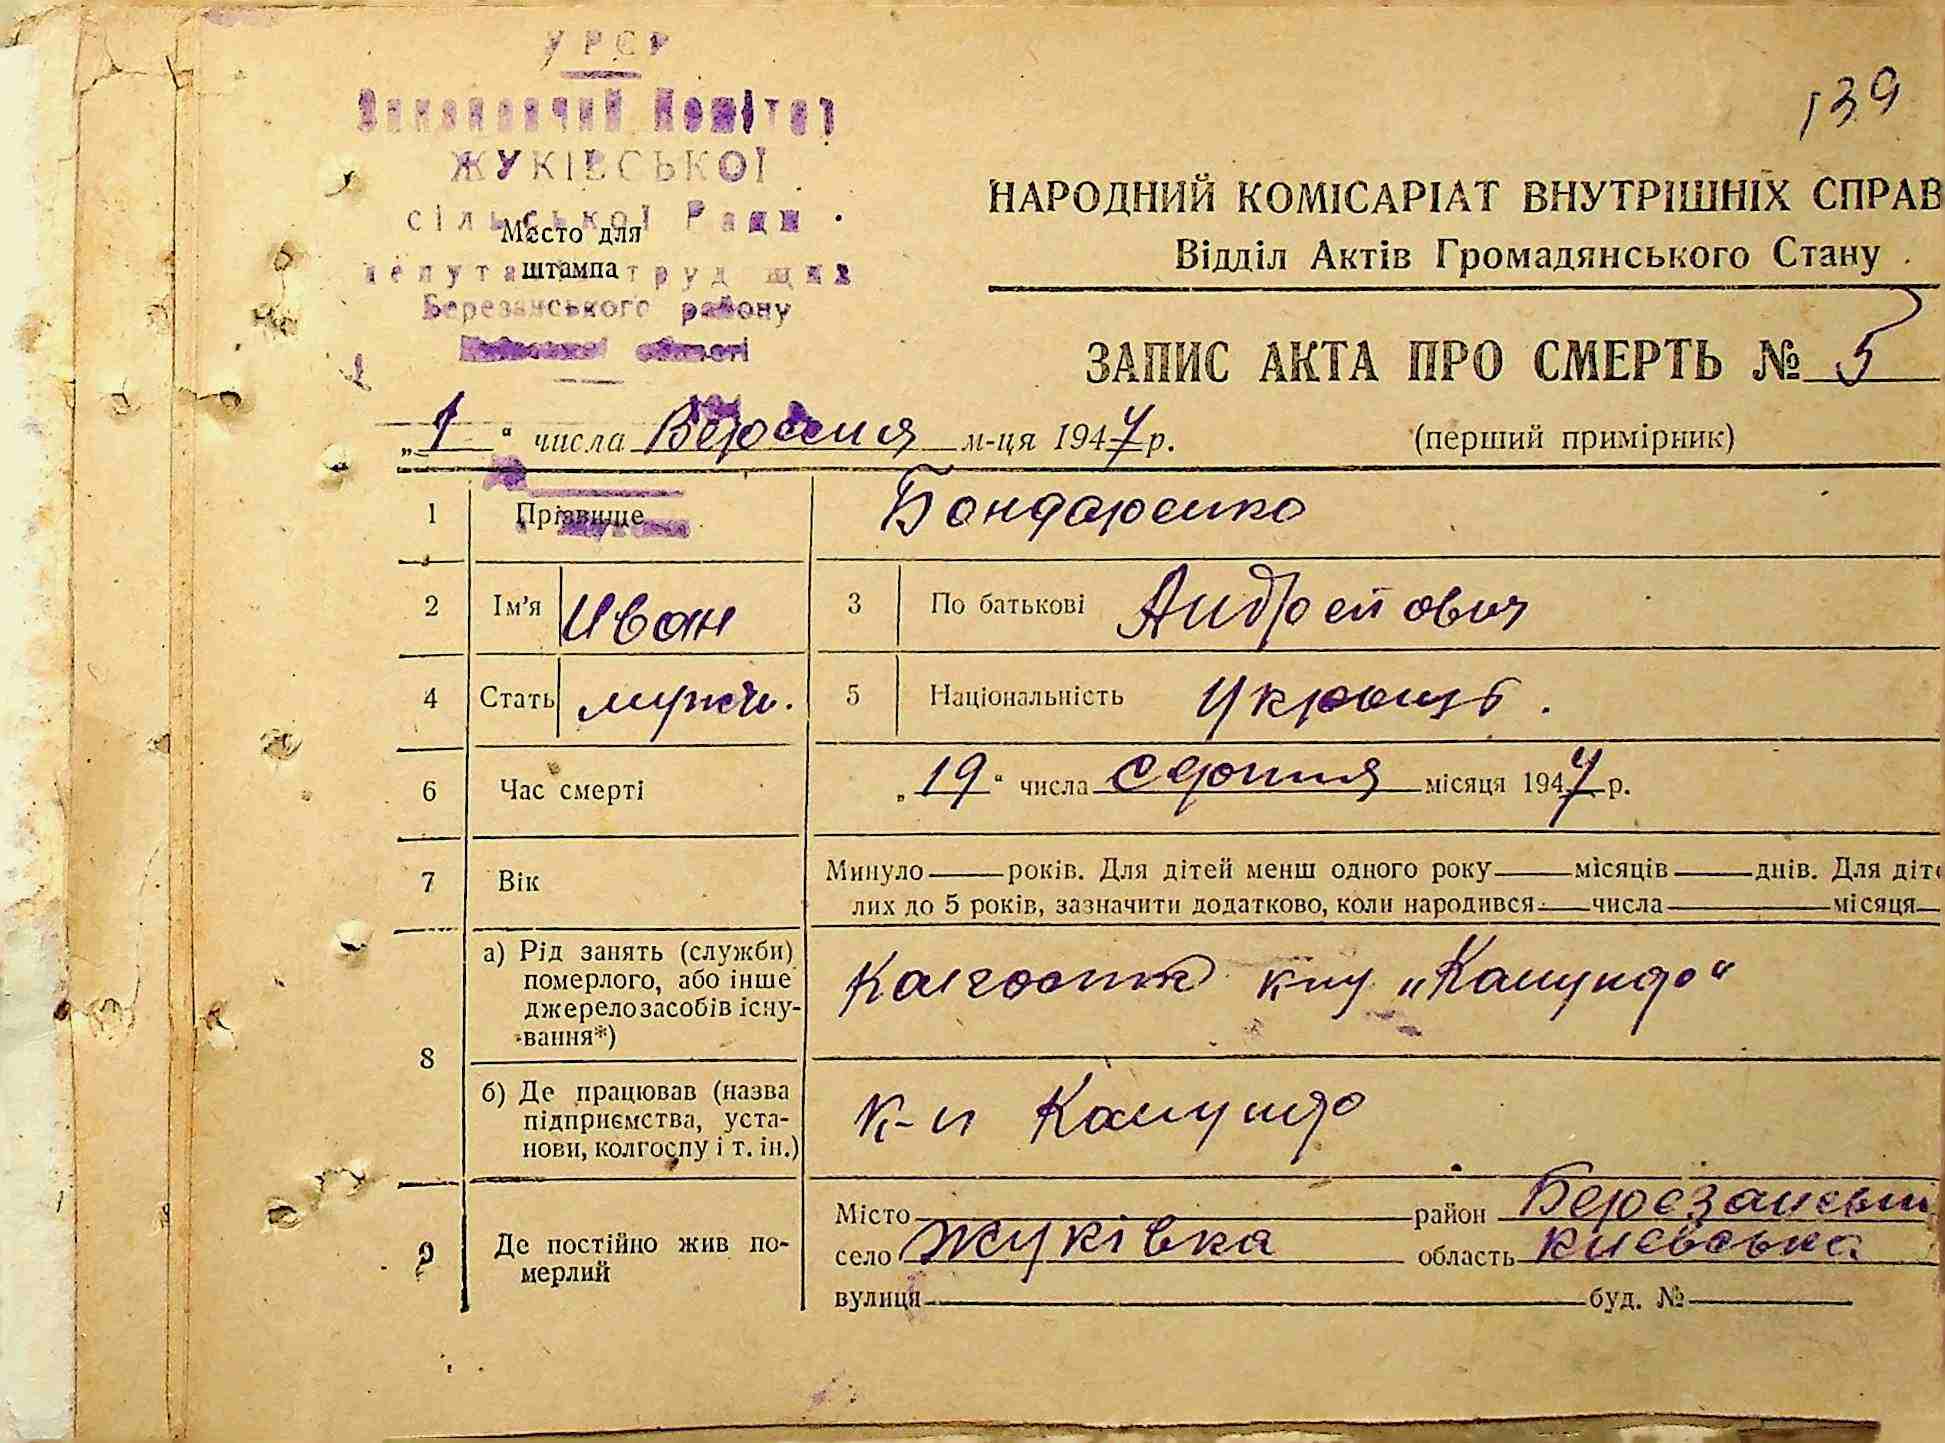 УРСР
Виконавчий Комітет
ЖУКІВСЬКОЇ
сільської Ради
Место для
штампа
депутатів трудящих
Березанського району
Київської області
139
НАРОДНИЙ КОМІСАРІАТ ВНУТРІШНІХ СПРАВ
Відділ Актів Громадянського Стану
ЗАПИС АКТА ПРО СМЕРТЬ № 5
„1" числа Вересня м-ця 1947 р. (перший примірник)
1 Прізвище Бондаренко
2 Ім'я Иван 3 По батькові Андреевич
4 Стать мужч. 5 Національність Украинц.
6 Час смерті „19" числа серпня місяця 1947 р.
7 Вік Минуло років. Для дітей менш одного року місяців днів. Для діте
лих до 5 років, зазначити додатково, коли народився числа місяця
8 а) Рід занять (служби) померлого, або інше джерело засобів існу-вання*) Колгоспник „Комунар"
б) Де працював (назва підприємства, уста-нови, колгоспу і т. ін.) к-п Комунар
9 Де постійно жив по-мерлий
Місто район Березанськи
село Жуківка область київська
вулиця буд. №